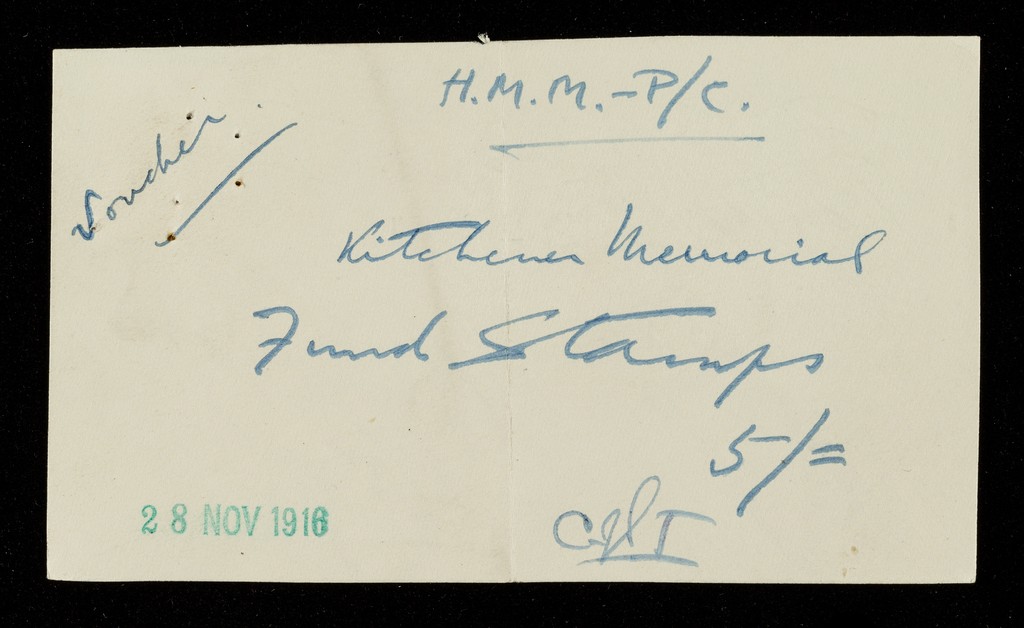 H.M.M.-P/C.
Voucher
Kitchener Memorial
Fund Stamps
5/=
28 NOV 1916